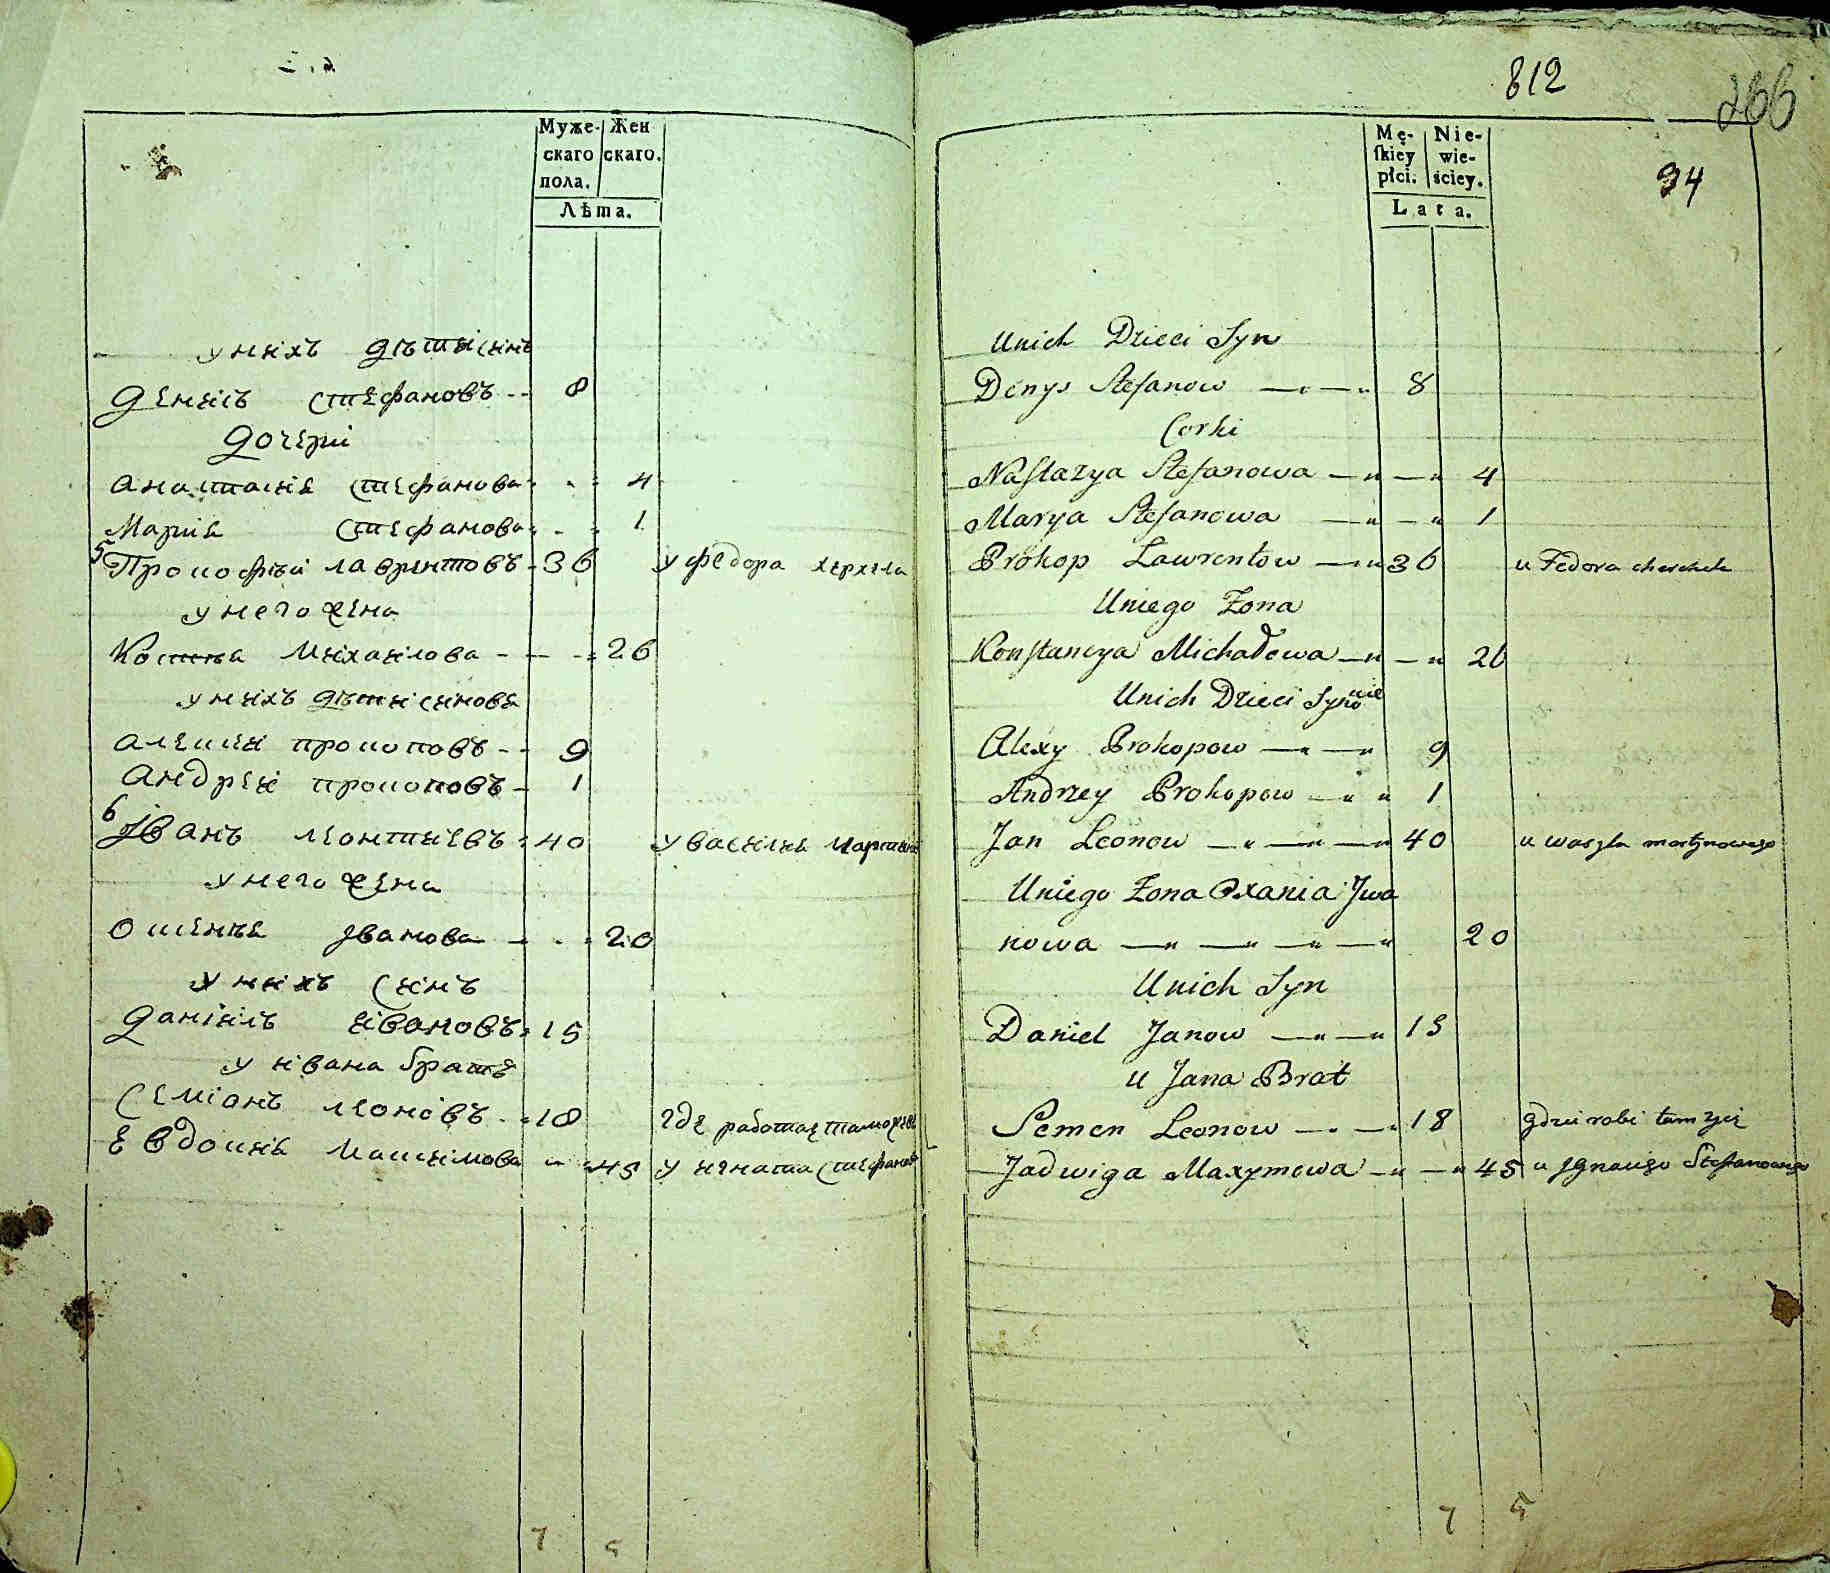 Муже-
скаго
пола.
Жен
скаго.
Лѣта.
у нихъ дѣти синъ
Денисъ Стефановъ 8
Дочери
Анастасия Стефанова 4
Мария Стефанова 1
5 Прокофъй Лаврентовъ 36 у Федора
у него жена
Костя Михаилова 26
у нихъ дѣти синовя
Алексий прокоповъ 9
Андрей прокоповъ 1
6 Іванъ Леонтиевъ 40 у Василия
у него жена
Оксения Іванова 20
у нихъ синъ
Данііль ивановъ 15
у ивана братъ
Семіонъ леоновъ 18 где работае там
Евдокия Максимова 45 у игната Стефанов
7 5
812
266
Mę-
skiey
płci.
Nie-
wie-
ściey.
Lata.
94
Unich Dzieci Syn
Denys Stefanow 8
Corki
Nastazya Stefanowa 4
Marya Stefanowa 1
Prokop Lawrentow 36 u Fedora
Uniego Żona
Konstancya Michałowa 26
Unich Dzieci Synowie
Alexy Prokopow 9
Andrzey Prokopow 1
Jan Leonow 40 u Wasyla martynowego
Uniego Żona Oxania Jwa
nowa 20
Unich Syn
Daniel Janow 15
u Jana Brat
Semen Leonow 18 gdzie robi tam żyie
Jadwiga Maxymowa 45 u Jgnacego Stefanowego
7 5